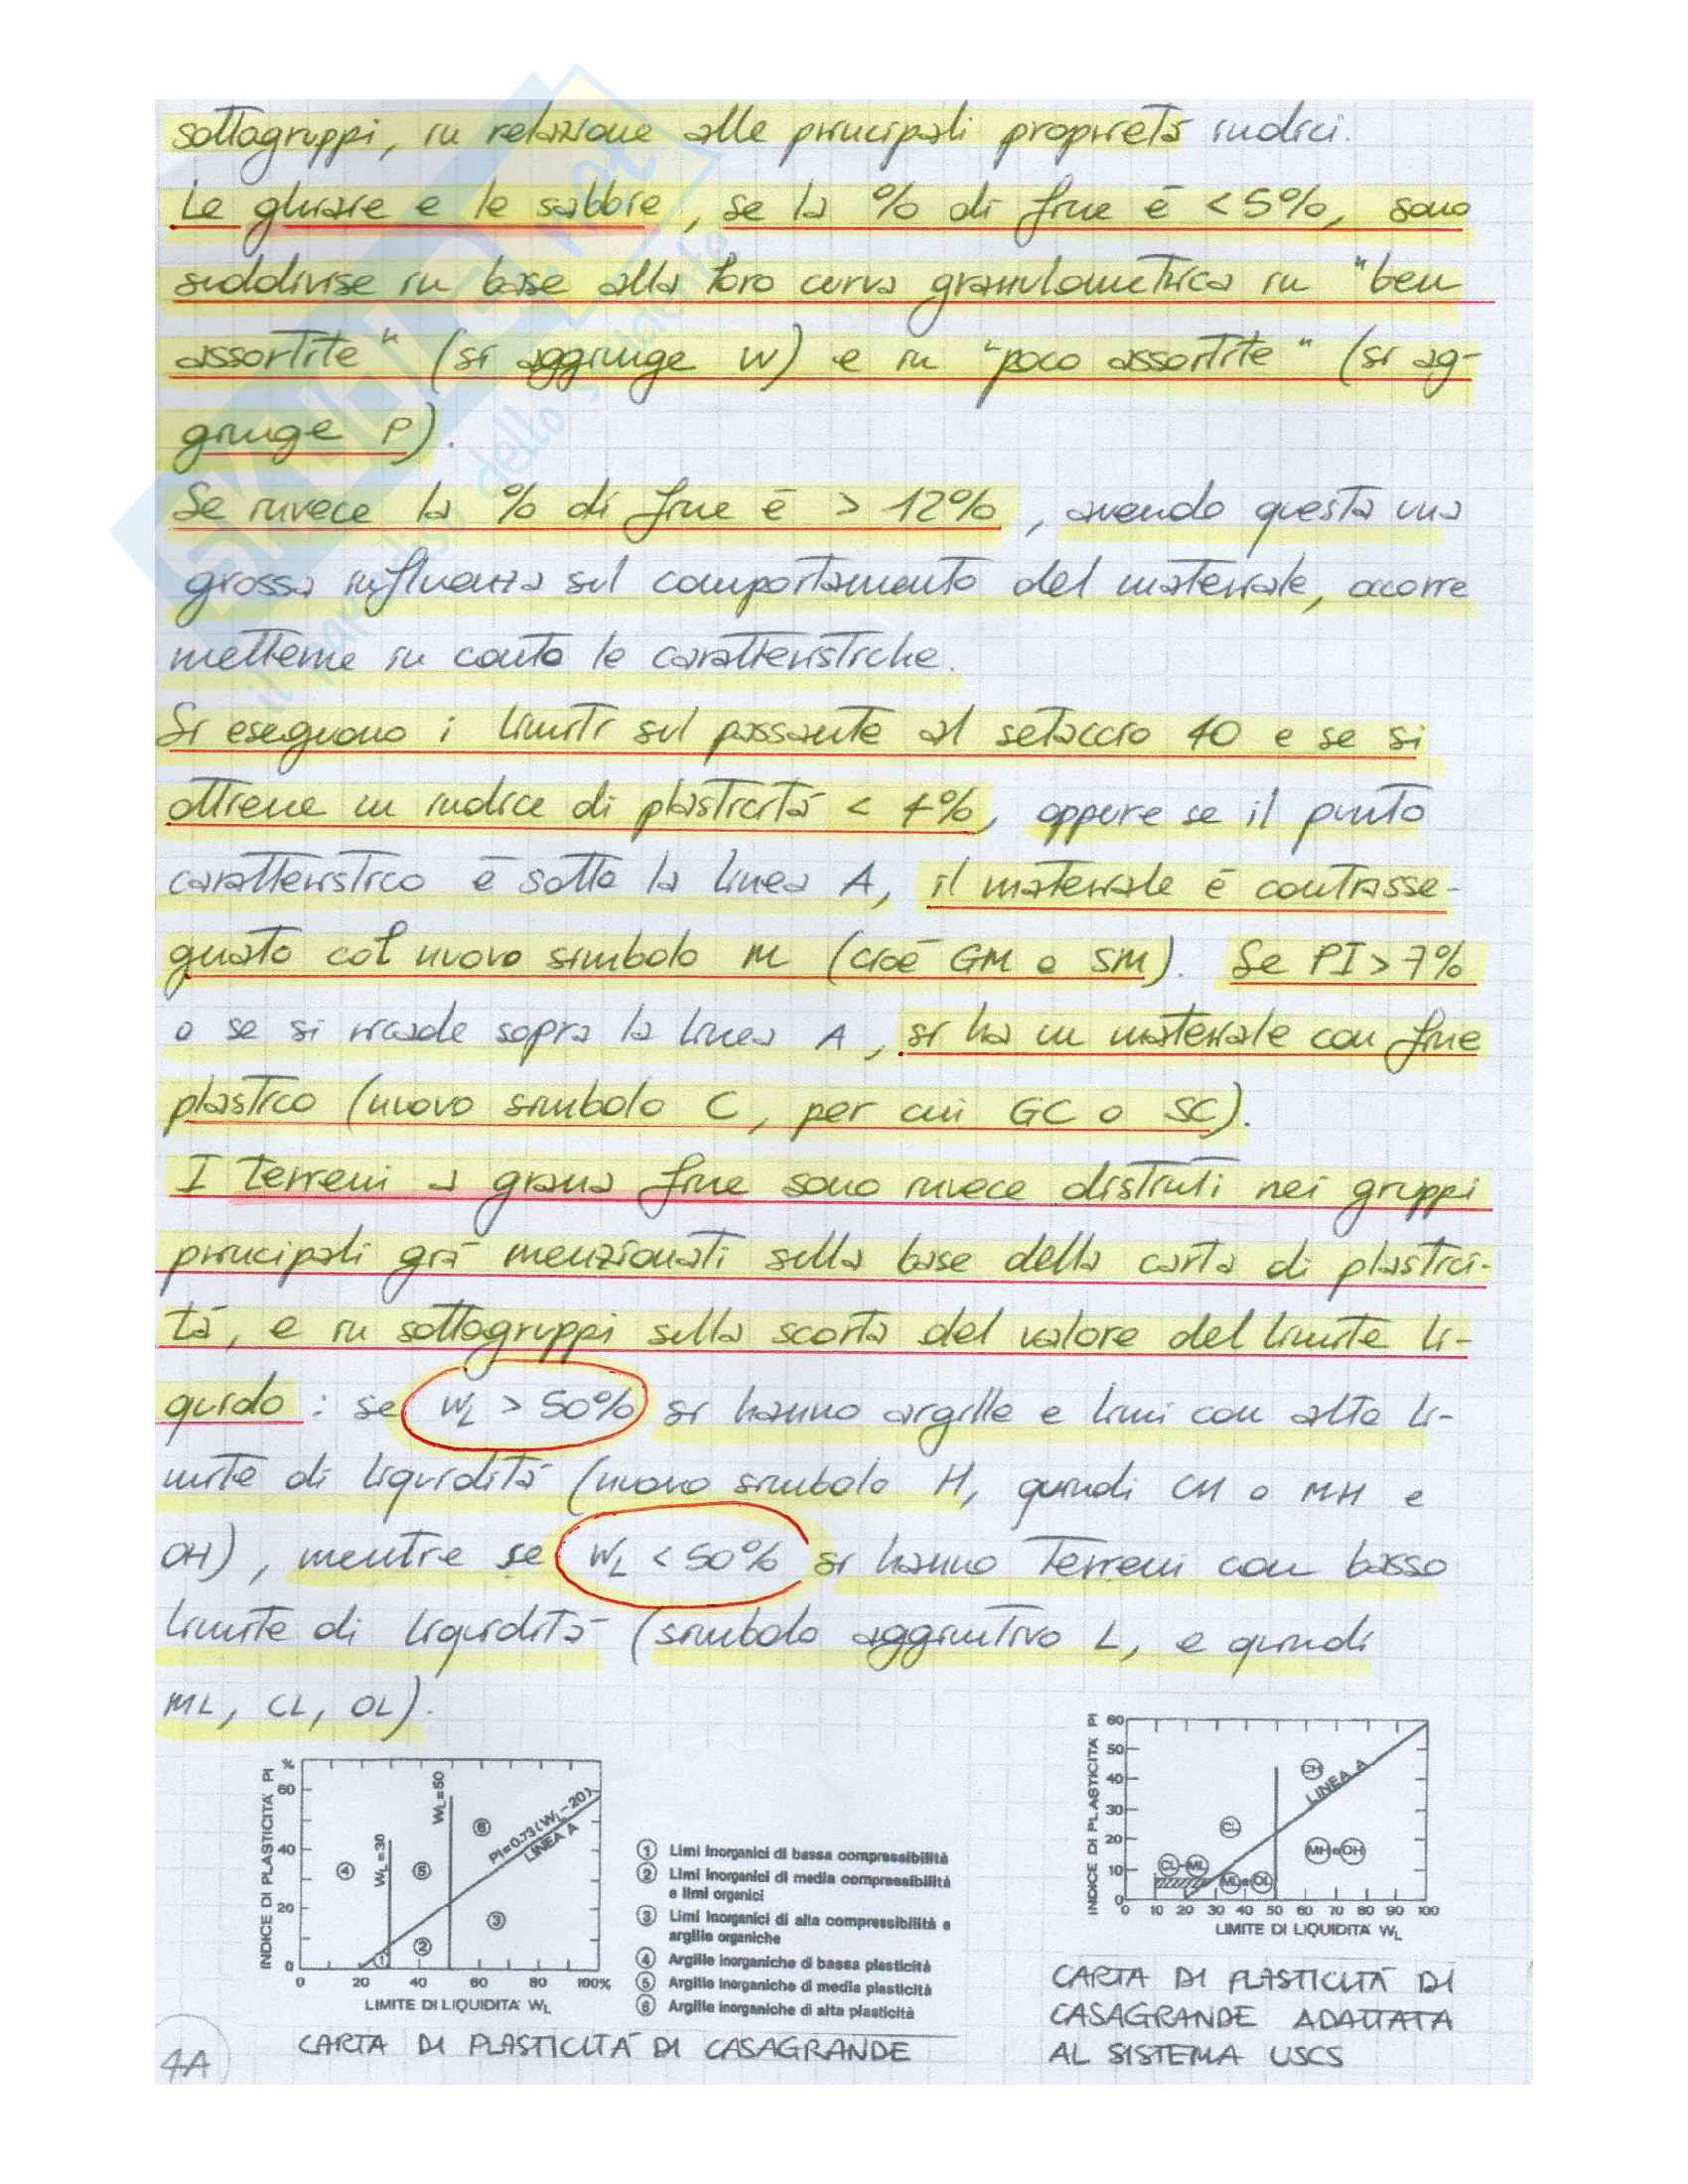 sottogruppi, in relazione alle principali proprietà indici.
Le ghiaie e le sabbie, se la % di fine è < 5%, sono
suddivise in base alla loro curva granulometrica in "ben
assortite" (si aggiunge W) e in "poco assortite" (si ag-
giunge P).
Se invece la % di fine è > 12%, avendo questa una
grossa influenza sul comportamento del materiale, occorre
metterne in conto le caratteristiche.
Si eseguono i limiti sul passante al setaccio 40 e se si
ottiene un indice di plasticità < 4%, oppure se il punto
caratteristico è sotto la linea A, il materiale è contrasse-
gnato col nuovo simbolo M (cioè GM o SM). Se PI > 7%
o se si ricade sopra la linea A, si ha un materiale con fine
plastico (nuovo simbolo C, per cui GC o SC).
I terreni a grana fine sono invece distinti nei gruppi
principali già menzionati sulla base della carta di plastici-
tà, e in sottogruppi sulla scorta del valore del limite li-
quido: se WL > 50% si hanno argille e limi con alto li-
mite di liquidità (nuovo simbolo H, quindi CH o MH e
OH), mentre se WL < 50% si hanno terreni con basso
limite di liquidità (simbolo aggiuntivo L, e quindi
ML, CL, OL).
INDICE DI PLASTICITA' PI
%
60
40
20
0
WL=30
WL=50
PI=0.73(WL-20)
LINEA A
4
5
6
1
2
3
0 20 40 60 80 100%
LIMITE DI LIQUIDITA' WL
1 Limi inorganici di bassa compressibilità
2 Limi inorganici di media compressibilità
e limi organici
3 Limi inorganici di alta compressibilità e
argille organiche
4 Argille inorganiche di bassa plasticità
5 Argille inorganiche di media plasticità
6 Argille inorganiche di alta plasticità
CARTA DI PLASTICITÀ DI CASAGRANDE
INDICE DI PLASTICITA' PI
60
50
40
30
20
10
0
CH
LINEA A
CL
MH e OH
CL-ML
ML e OL
0 10 20 30 40 50 60 70 80 90 100
LIMITE DI LIQUIDITA' WL
CARTA DI PLASTICITÀ DI
CASAGRANDE ADATTATA
AL SISTEMA USCS
4A